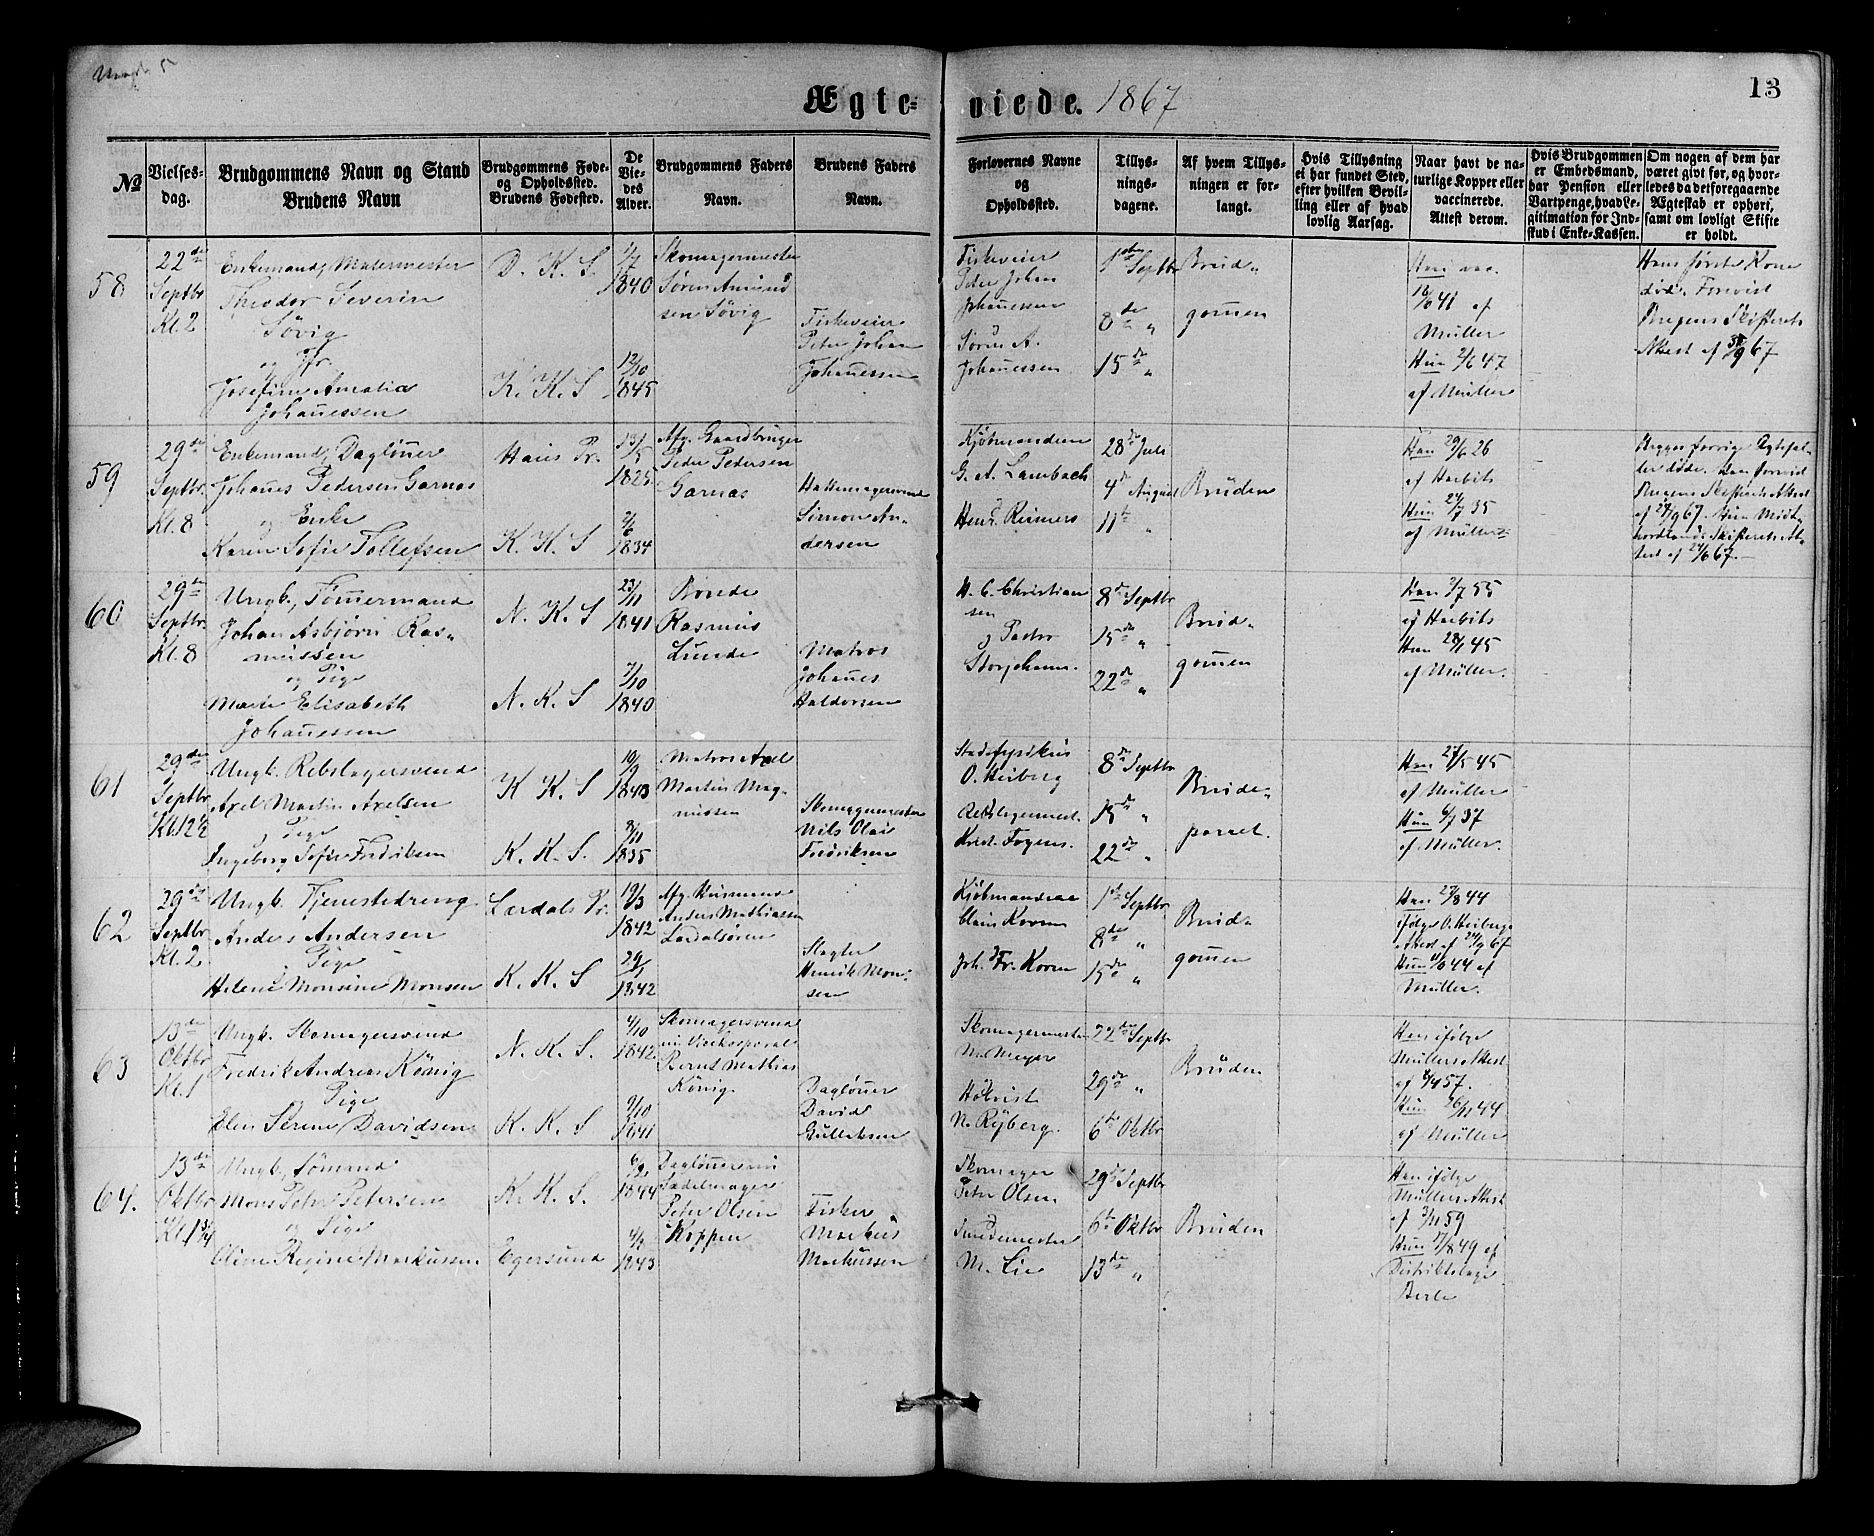 Ægte=
viede. 1867
13
No
Vielses-
dag.
Brudgommens Navn og Stand
Brudens Navn
Brudgommens Føde-
og Opholdssted.
Brudens Fødested.
De
Vie-
des
Alder.
Brudgommens Faders
Navn.
Brudens Faders
Navn.
Forlovernes Navne
og
Opholdssted.
Tillys-
nings-
dagene.
Af hvem Tillys-
ningen er for-
langt.
Hvis Tillysning
ei har fundet Sted,
efter hvilken Bevil-
ling eller af hvad
lovlig Aarsag.
Naar havt de na-
turlige Kopper eller
vaccinerede.
Attest derom.
Hvis Brudgommen
er Embedsmand,
har Pension eller
Vartpenge, hvad Le-
gitimation for Ind-
skud i Enke-Kassen.
Om nogen af dem har
været givt før, og hvor-
ledes da det foregaaende
Ægteskab er ophørt,
samt om lovligt Skifte
er holdt.
58
22de
Septbr
Kl. 2
Enkemand, Malermester
Theodor Severin
Søvig
og Jfr.
Josefine Amalia
Johanessen
D. K. S.
K. K. S
1/7
1840
12/10
1845
Skomagermester
Søren Amund
sen Søvig
Fiskeveier
Peter Johan
Johanessen
Fiskeveier
Peter Johan
Johanessen
Søren A.
Johanessen
1ste Septbr
8de "
15de "
Brud-
gomen
41 af
Müller
Hun 2/6 47
af Müller
Hans første Kone
døde. Forevist
Bergens Skifterets
Attest af 67
59
29de
Septbr.
Kl. 8
Enkemand, Dagløner
Johanes Pedersen Garnas
og Enke
Karen Sofie Tollefsen
Haus Pr.
K. K. S
13/5
1825
2/6
1834
Afg. Gaardbruger
Peder Pedersen
Garnas
Hattemagersvend
Simon An-
dersen
Kjøbmandene
G. A. Lambach
Henr. Reimers
28de Juli
4de August
11te "
Bruden
Han 29/6 26
af Harbits
Hun 24/7 35
af Müller
Begges forrige Ægtefæl-
ler døde. Han forevist
Bergens Skifterets Attest
af 67. Hun Midt-
hordlands Skifterets At-
test af 24/6 67.
60
29de
Septbr.
Kl. 8
Ungk., Tømermand
Johan Asbjørn Ras-
mussen
og Pige
Marie Elisabeth
Johanessen
N. K. S
N. K. S
23/11
1841
7/10
1840
Bonde
Rasmus
Lunde
Matros
Johanes
Haldorsen
H. C. Christian
sen
og Pastor
Storjohann.
8de Septbr
15de "
22de "
Brud-
gomen
Han 2/7 55
af Harbits
Hun 28/1 45
af Müller.
61
29de
Septbr
Kl. 12 1/2
Ungk. Rebslagersvend
Axel Martin Axelsen
og Pige
Ingeborg Sofie Fredriksen
K. K. S
K. K. S.
10/9
1843
8/11
1835
Matros Axel
Martin Mag-
nussen
Skomagermester
Nils Olai
Fredriksen
Stadsfysikus
O. Heiberg
Rebslagermest.
8de Septbr
15de "
22de "
Brude-
parret.
Han 27/5 45
af Müller
Hun 6/7 37
af Müller.
62
29de
Septbr
Kl. 2
Ungk. Tjenestedreng
Anders Andersen
og Pige
Helene Monsine Monsen
Lærdals Pr.
K. K. S
19/3
1842
29/1
1842
Afg. Husmand
Anders Mathiassen
Lærdalsøren
Slagter
Henrik Mon-
sen
Kjøbmændene
Claus Koren
Joh. Fr. Koren
1ste Septbr
8de "
15de "
Brud-
gomen
Han 27/8 44
ifølge O. Heibergs
Attest af 24/9 67
Hun 44 af
Müller.
63
13de
Oktbr
Kl. 1
Ungk. Skomagersvend
Fredrik Andreas König
og Pige
Elen Serine Davidsen
N. K. S.
K. K. S
4/10
1842
9/10
1841
Skomagersvend
Bernt Mathias
König
Dagløner
David
Gulleksen
Skomagermester
M. Meyer
N. Ryberg.
22de Septbr
29de "
6te Oktbr
Bruden
Han ifølge
Müllers Attest
af 57.
Hun 26/11 44
af Müller
64.
13de
Oktbr
Kl. 1 3/4
Ungk., Sømand
Mons Peter Petersen
og Pige
Oline Regine Markussen
K. K. S.
Egersund
1844
4/2
1843
Sadelmager
Peter Olsen
Koppen
Fisker
Markus
Markussen
Skomager
Peter Olsen
Smedemester
M. Lie
29de Septbr
6te Oktbr
13de "
Bruden
Han ifølge
Müllers Attest
af 3/11 59
Hun 17/8 49 af
Distriktslæge
Berle